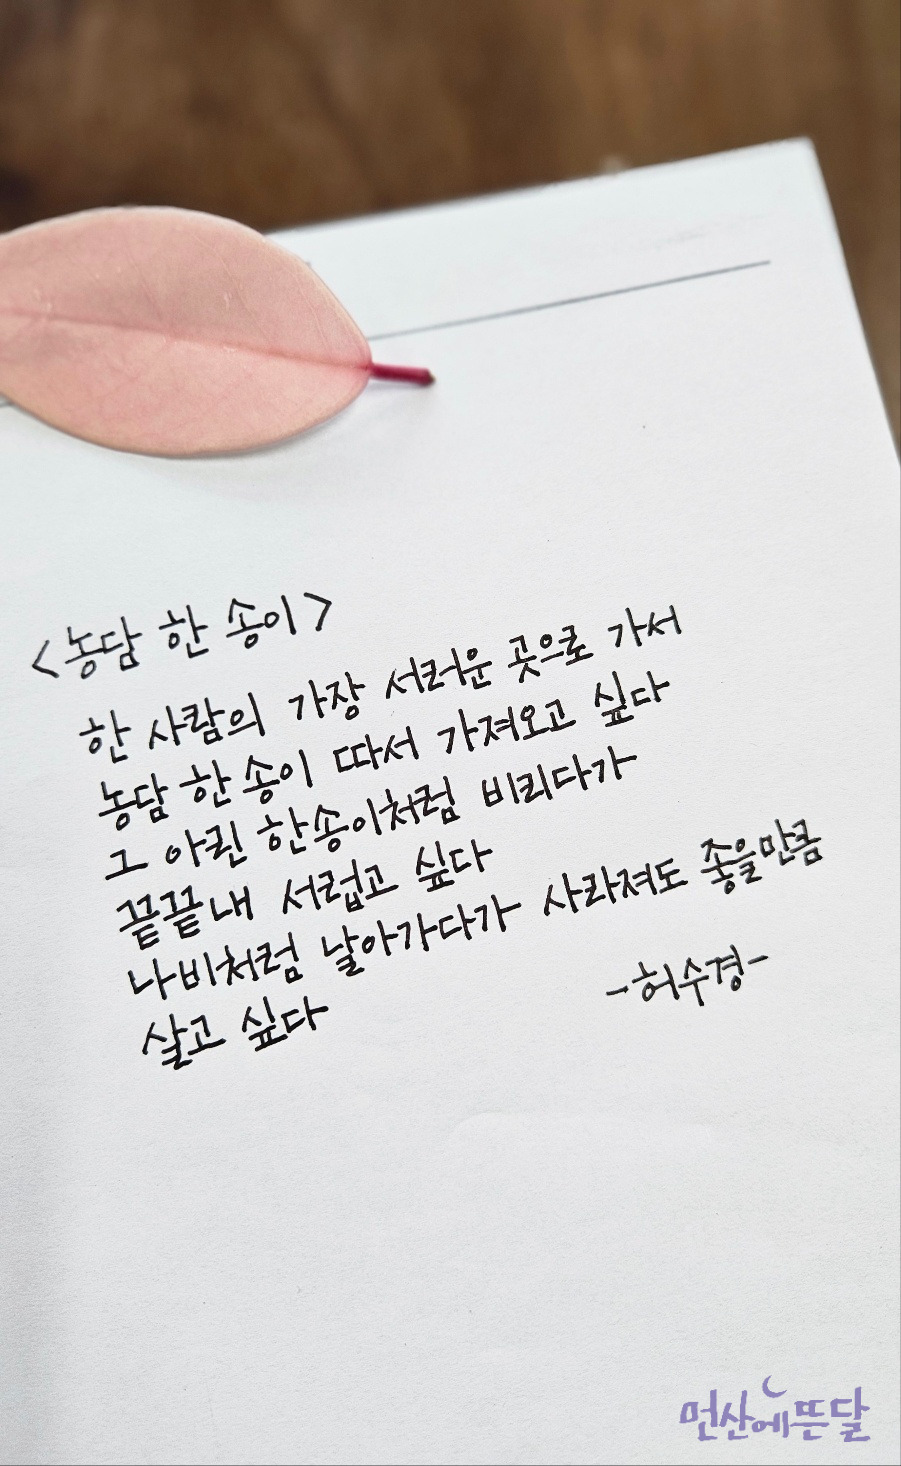 <농담 한 송이>
한 사람의 가장 서러운 곳으로 가서
농담 한 송이 따서 가져오고 싶다
그 아린 한송이처럼 비리다가
끝끝내 서럽고 싶다
나비처럼 날아가다가 사라져도 좋을만큼
살고 싶다
-허수경-
먼산에뜬달